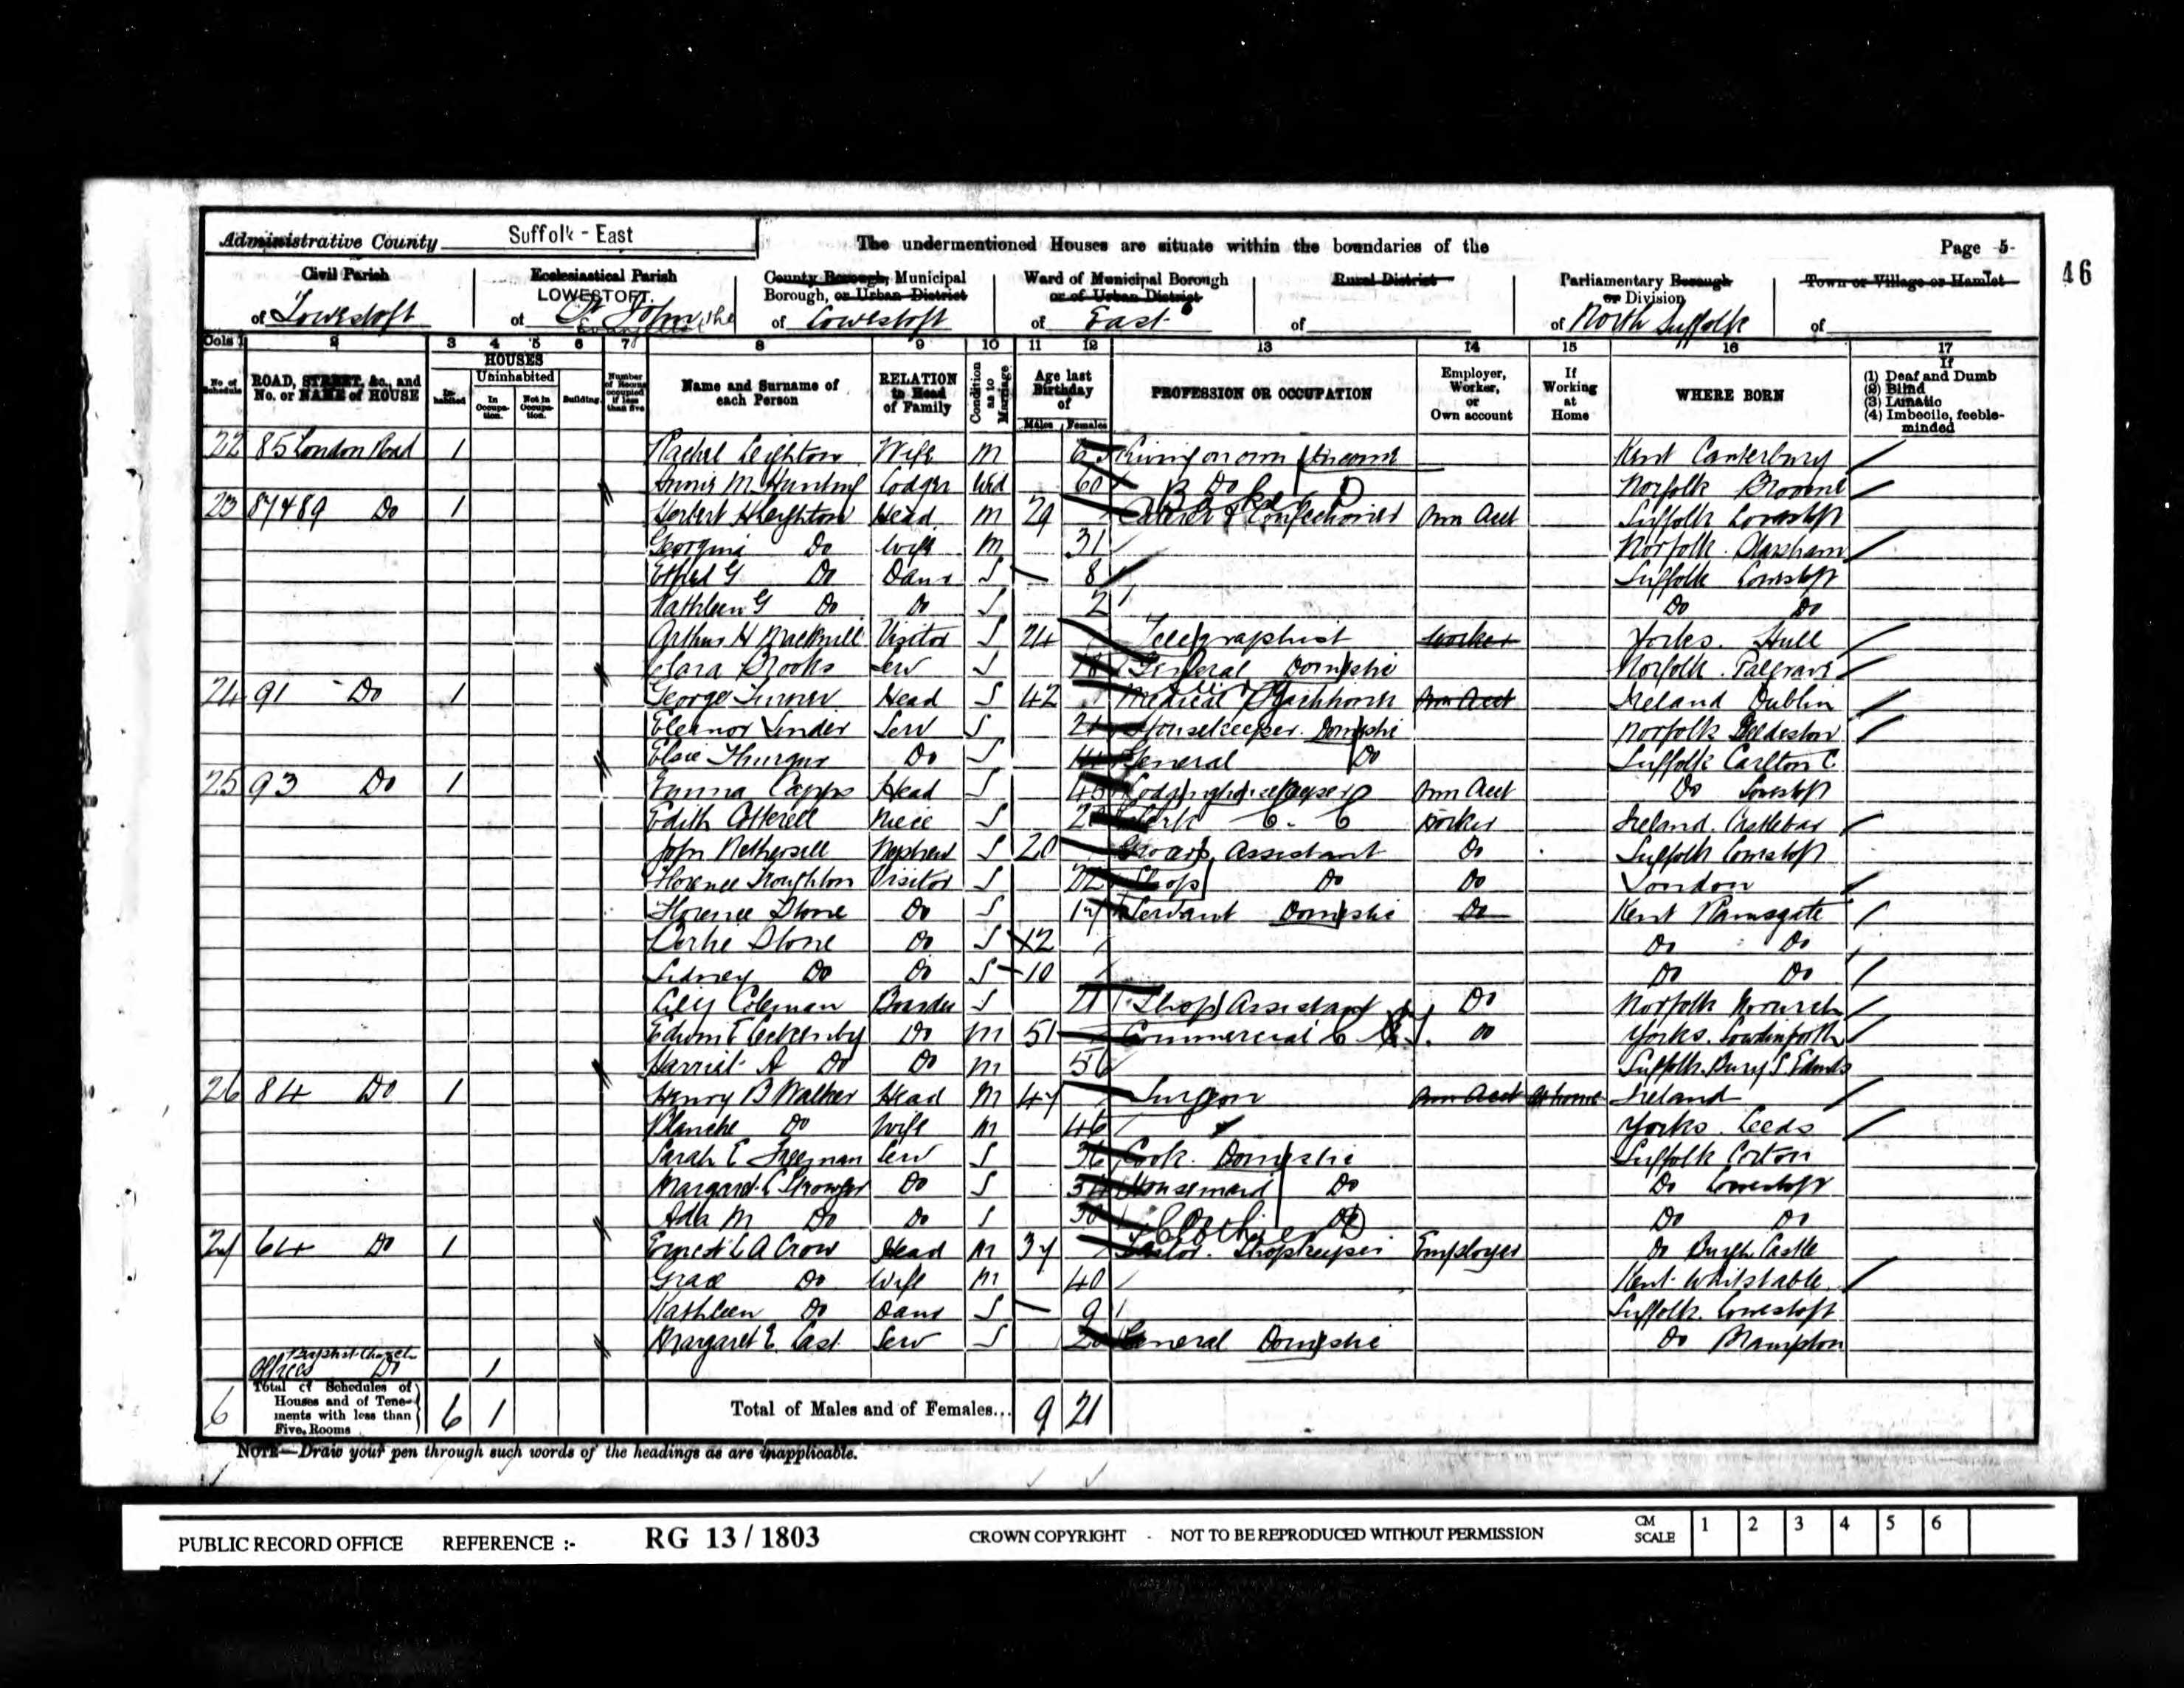 Administrative County Suffolk - East
The undermentioned Houses are situate within the boundaries of the
Page 5
46
Civil Parish
of Lowestoft
Ecclesiastical Parish
LOWESTOFT.
of St John the
Evangelist
County Borough, Municipal
Borough, or Urban District
of Lowestoft
Ward of Municipal Borough
or of Urban District
of East
Rural District
of
Parliamentary Borough
or Division
of North Suffolk
Town or Village or Hamlet
of
Cols 1 2 3 4 5 6 7 8 9 10 11 12 13 14 15 16 17
No of Schedule
ROAD, STREET, &c., and
No. or NAME of HOUSE
HOUSES
Inhabited
Uninhabited
In Occupation.
Not in Occupation.
Building.
Number of Rooms occupied if less than five
Name and Surname of
each Person
RELATION
to Head
of Family
Condition as to Marriage
Age last
Birthday
of
Males Females
PROFESSION OR OCCUPATION
Employer,
Worker,
or
Own account
If
Working
at
Home
WHERE BORN
If
(1) Deaf and Dumb
(2) Blind
(3) Lunatic
(4) Imbecile, feeble-
minded
22 85 London Road 1 Rachel Leighton Wife M 65 Living on own Income Kent Canterbury
Annie M. Lodger Wid 60 Do Norfolk Broome
23 87 & 89 Do 1 Herbert H Leighton Head M 29 Baker & Confectioner Own Acct Suffolk Lowestoft
Georgina Do Wife M 31 Norfolk
Ethel G Do Daur S 8 Suffolk Lowestoft
Kathleen G Do Do S 2 Do Do
Arthur H Visitor S 24 Telegraphist Worker Yorks. Hull
Clara Brooks Serv S 18 General Domestic Norfolk Palgrave
24 91 Do 1 George Turner Head S 42 Medical Own Acct Ireland Dublin
Eleanor Serv S Housekeeper Domestic Norfolk
Elsie Do S General Do Suffolk Carlton C.
25 93 Do 1 Emma Capps Head S 45 Lodginghousekeeper Own Acct Do Lowestoft
Edith Cotterell Niece S Clerk Worker Ireland. Castlebar
John Nethersell Nephew S 20 Assistant Do Suffolk Lowestoft
Florence Troughton Visitor S 22 Shop Do Do London
Florence Stone Do S 17 Servant Domestic Do Kent Ramsgate
Bertie Stone Do S 12 Do Do
Sidney Do Do S 10 Do Do
Lily Coleman Boarder S 21 Shop Assistant Do Norfolk Norwich
Edwin Do M 51 Commercial Do Yorks.
Harriet A Do Do M 56 Suffolk. Bury S Edmds
26 84 Do 1 Henry B Walker Head M 47 Surgeon Own Acct At home Ireland
Blanche Do Wife M 46 Yorks. Leeds
Sarah E Freeman Serv S 36 Cook. Domestic Suffolk Corton
Margaret Do S Housemaid Do Do Lowestoft
Ada M Do Do S 30 Do Do Do
27 64 Do 1 Ernest C A Crow Head M 37 Clothier Tailor. Shopkeeper Employer Do Burgh Castle
Grace Do Wife M 40 Kent. Whitstable
Kathleen Do Daur S 9 Suffolk. Lowestoft
Margaret E. Last Serv S General Domestic Do Brampton
Baptist Church
Offices Do 1
6
Total of Schedules of
Houses and of Tene-
ments with less than
Five Rooms
6 1
Total of Males and of Females... 9 21
NOTE—Draw your pen through such words of the headings as are inapplicable.
PUBLIC RECORD OFFICE REFERENCE :- RG 13 / 1803 CROWN COPYRIGHT - NOT TO BE REPRODUCED WITHOUT PERMISSION
CM SCALE 1 2 3 4 5 6